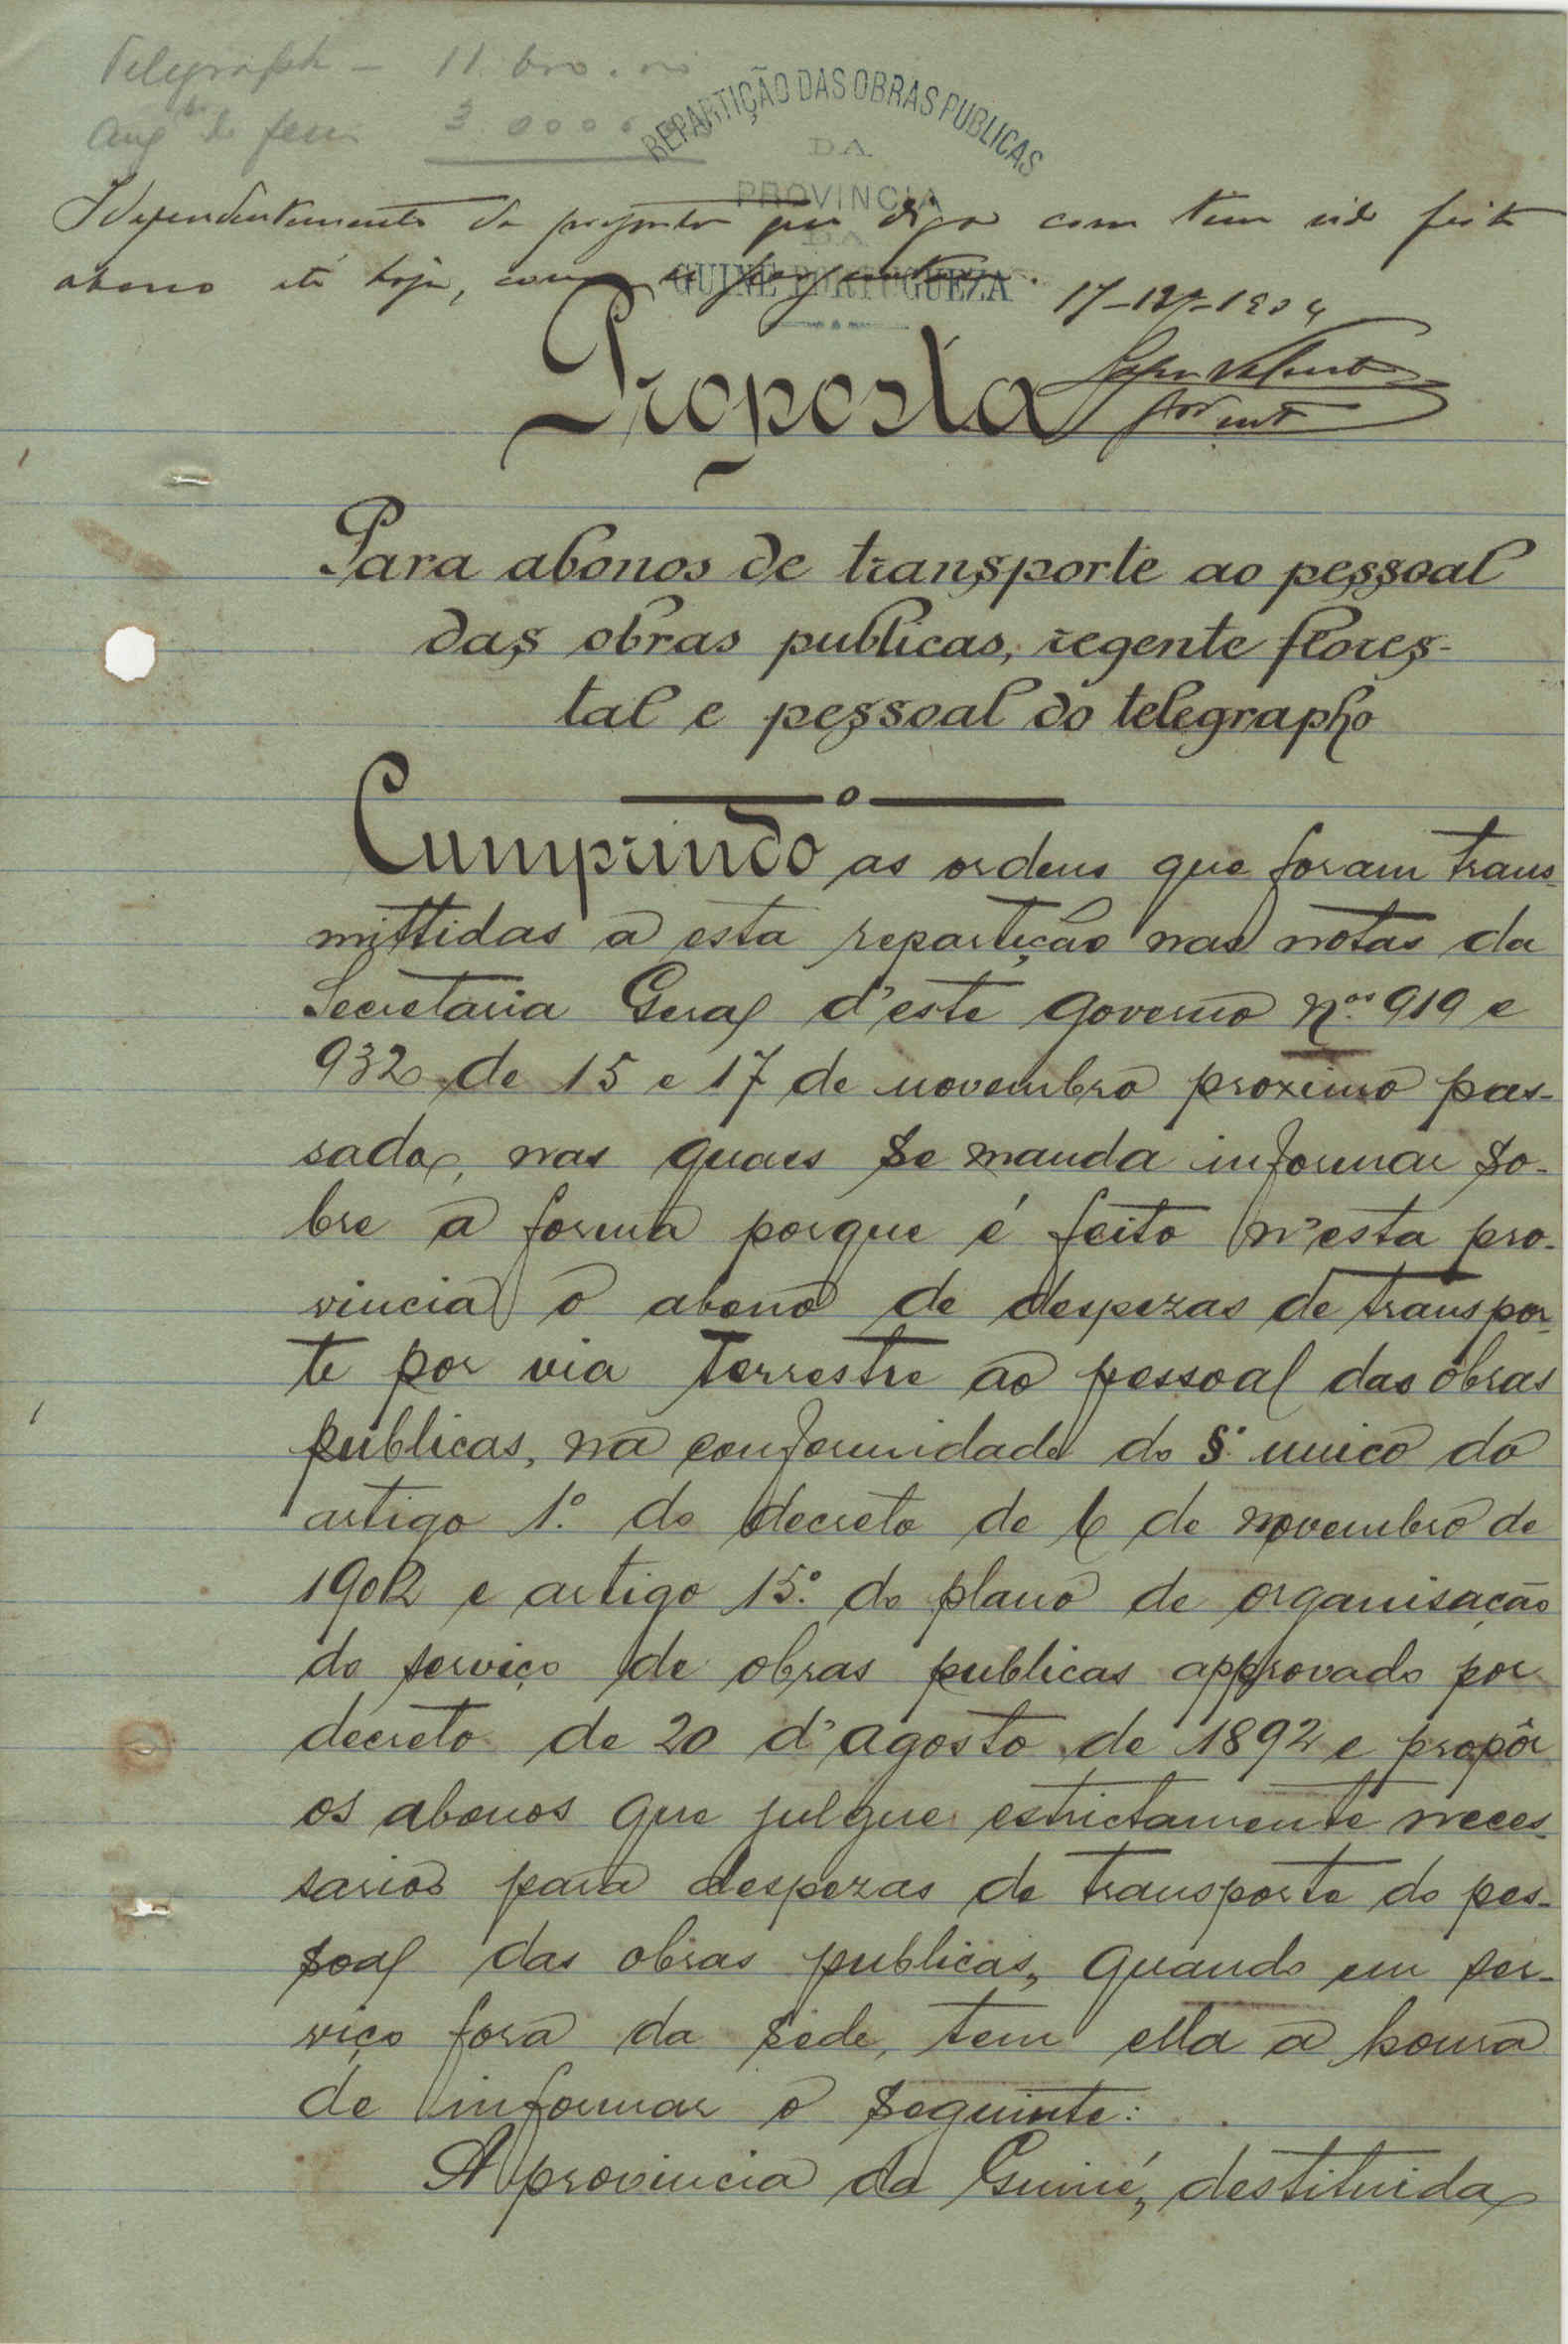 Telegrapho — 11
3.000
REPARTIÇÃO DAS OBRAS PUBLICAS
DA
PROVINCIA
DA
GUINÉ PORTUGUEZA
Idependentemente da proposta diga como tem sido feito
abono até hoje, 17-12-1904
Proposta
Para abonos de transporte ao pessoal
das obras publicas, regente flores-
tal e pessoal do telegrapho
Cumprindo as ordens que foram trans-
mittidas a esta repartição nas notas da
Secretaria Geral d'este Governo N.os 919 e
932 de 15 e 17 de novembro proximo pas-
sado, nas quaes se manda informar so-
bre a forma porque é feito n'esta pro-
vincia o abono de despezas de transpor-
te por via terrestre ao pessoal das obras
publicas, na conformidade do §.º unico do
artigo 1.º do decreto de 6 de novembro de
1902 e artigo 15.º do plano de organisação
do serviço de obras publicas approvado por
decreto de 20 d'agosto de 1892 e propôr
os abonos que julgue estrictamente neces-
sarios para despezas de transporte do pes-
soal das obras publicas, quando em ser-
viço fora da séde, tem ella a honra
de informar o seguinte:
A provincia da Guiné, destituida